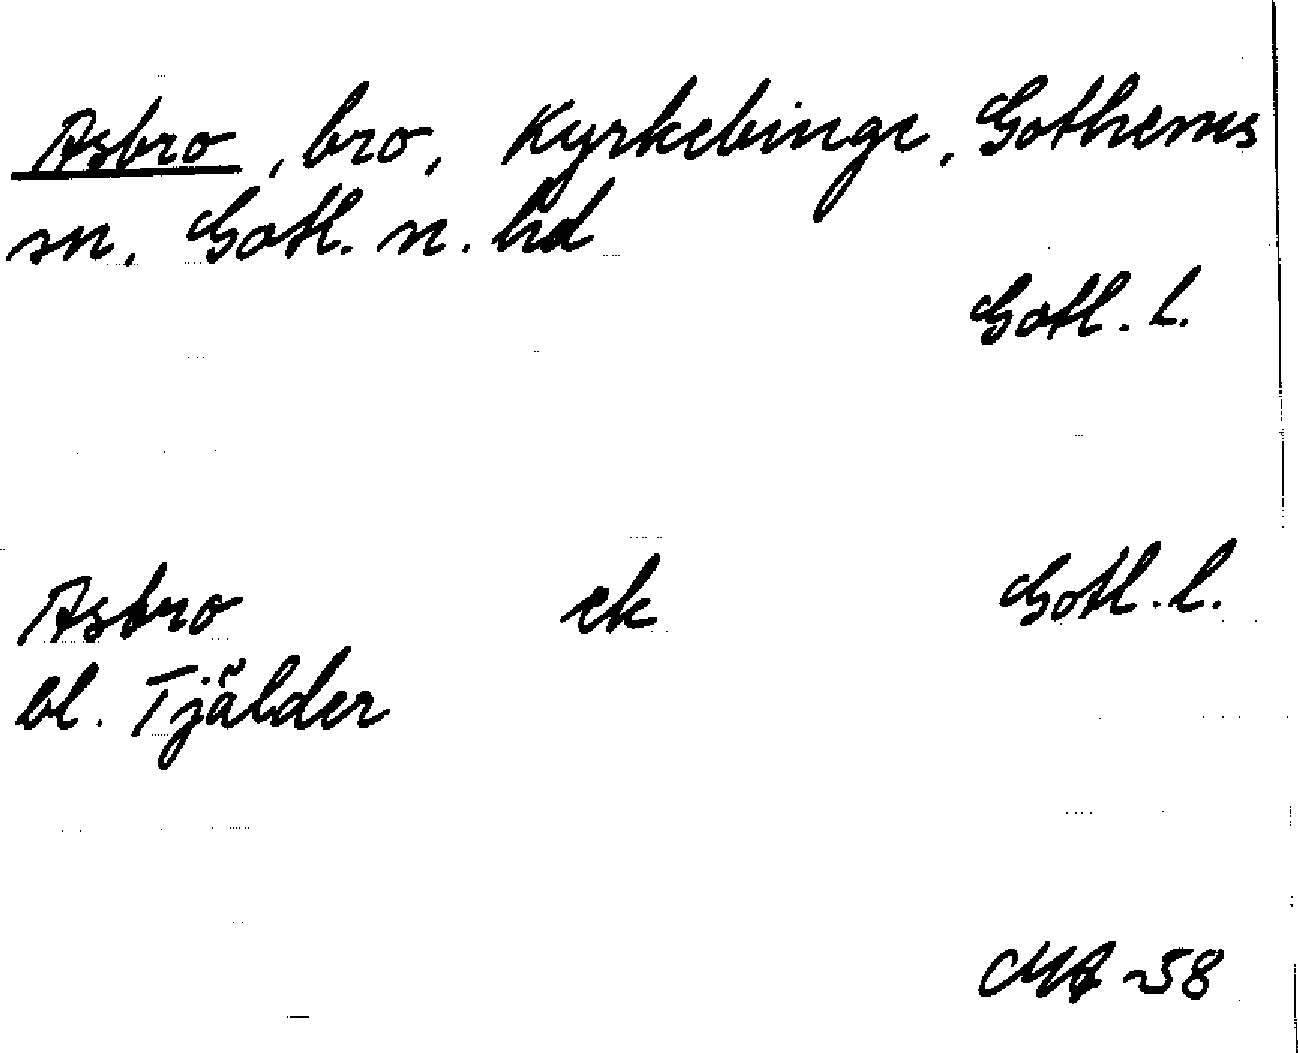 Asbro, bro, Kyrkebinge, Gothems
sn. Gotl. n. hd
Gotl. l.
Asbro ek Gotl. l.
bl. Tjälder
MA -58